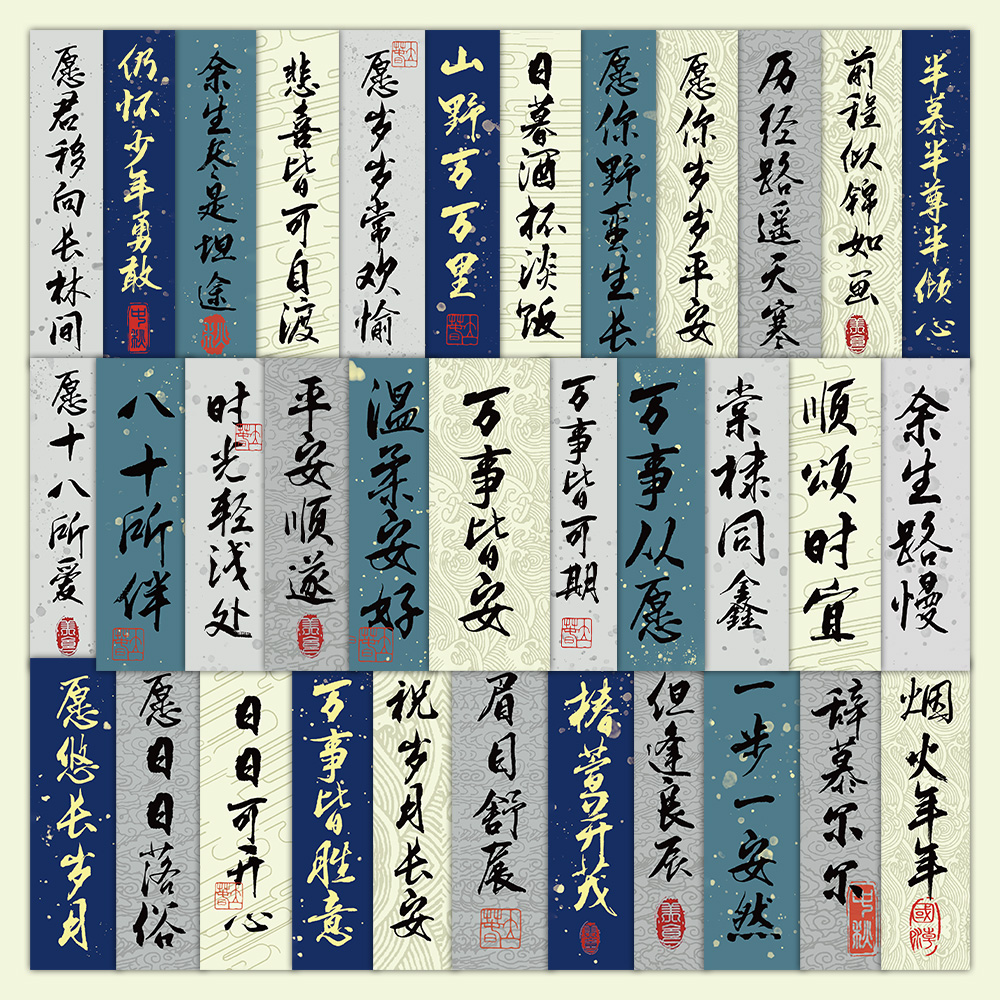 愿君移向长林间
仍怀少年勇敢
中秋
余生尽是坦途
悲喜皆可自渡
愿岁岁常欢愉
山野万万里
日暮酒杯淡饭
愿你野蛮生长
愿你岁岁平安
历经路遥天寒
前程似锦如画
半慕半尊半倾心
愿十八所爱
八十所伴
时光轻浅处
平安顺遂
温柔安好
万事皆安
万事皆可期
万事从愿
棠棣同鑫
顺颂时宜
余生路慢
愿悠长岁月
愿日日落俗
日日可开心
万事皆胜意
祝岁月长安
眉目舒展
椿萱并茂
但逢良辰
一步一安然
辞慕尔尔
中秋
烟火年年
國潮